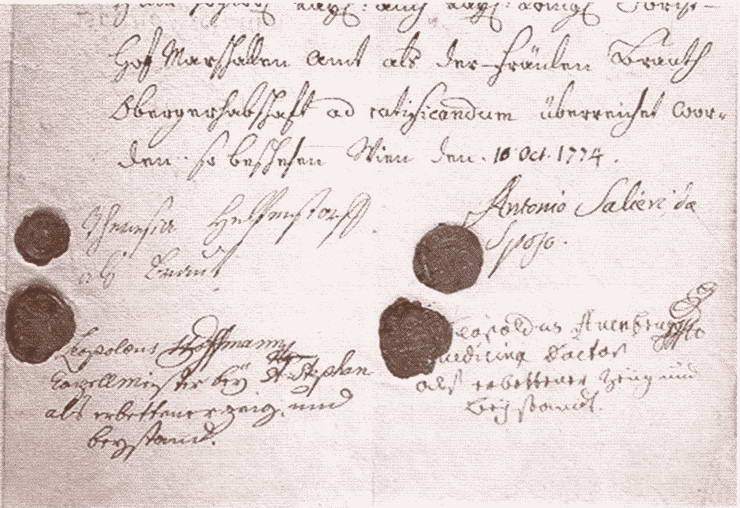 kayß: auch kayß: königl: Obrist-
Hof Marschallen Amt als der Fräulen Brauth
Obergerhabschaft ad ratificandum überreichet wor-
den. so beschehen Wien den. 10 Oct. 1774.
Theresia Helfenstorff
als Braut
Antonio Salieri da
Sposo.
Leopoldus Hoffmann
Capellmeister bey St Stephan
als erbettener zeig. und
beystand.
Leopoldus Auenbrugg
Medicinæ Doctor
als erbettener Zeug und
beystandt.